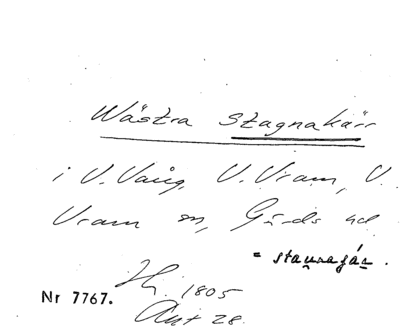 Wästra Stagnakärr
i V. Vång, V. Vram, V.
Vram sn, Gärds hd.
= staunagár.
Hi. 1805
Akt 28.
Nr 7767.